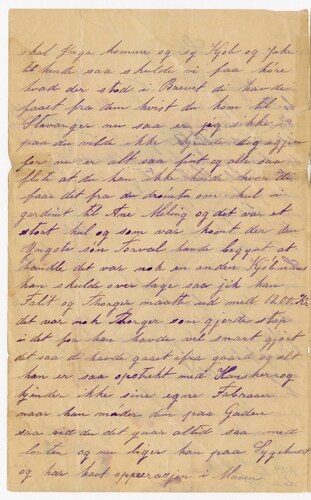 skal Inga komme og sy Kjol og Jake
til hende saa skulde vi faa høre
hvad der stod i Brevet di havde
faaet fra dem hvist du kom til
Stavanger nu saa er jeg sikker
paa du vilde ikke kjende dig igjen
for nu er alt saa fint og alle saa
flot at du kan ikke
faar det fra du som hul i
gardinet til Ane Meling og det var et
stort hul og som var komt der den
Yngste søn Torval havde begynt at
handle det var nok en anden
han skulde over tage saa gik han
Falit og Thorger maatte ud med 1200 Kr
det var nok Thorger som gjorde stop
i det for han havde vel snart gjort
det saa di havde gaaet ifra gaard og alt
han er saa med Hans
kjender ikke sine egne
naar han møder dem paa Gaden
saa ved du det gaar altid saa med
og nu ligger han paa Sygehuset
og har havt operasjon i Maven